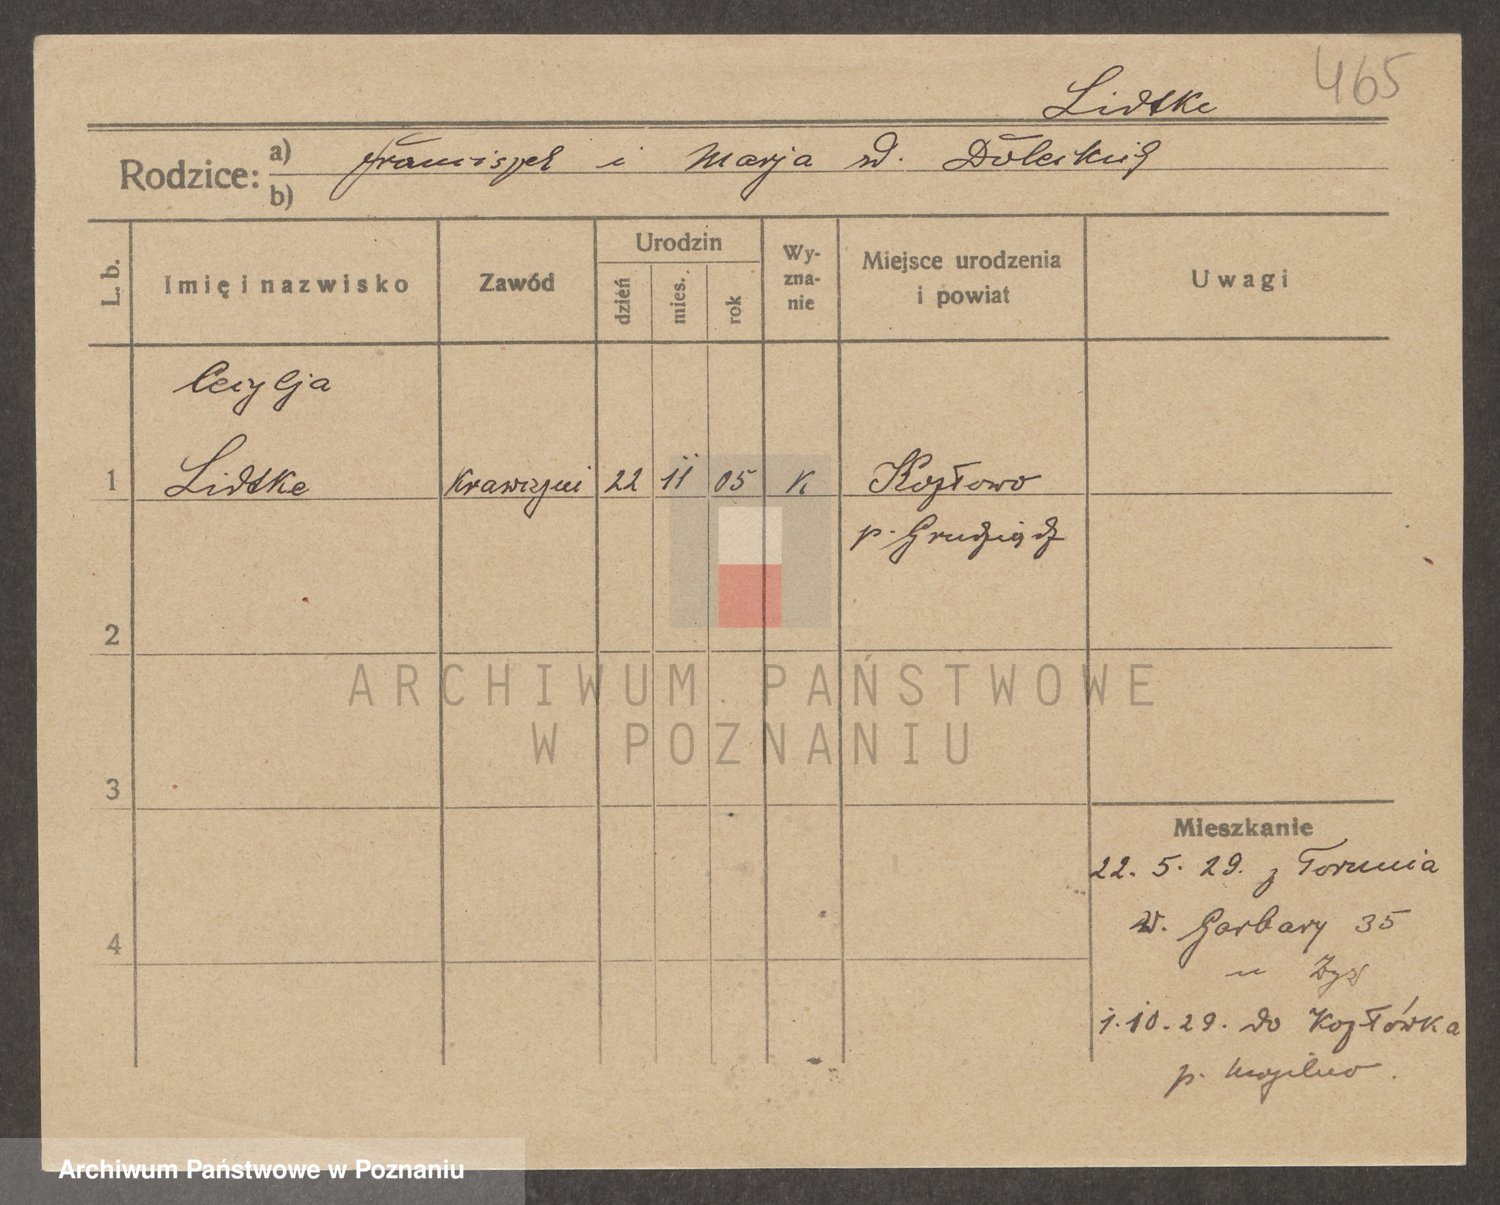 465
Lidtke
Rodzice: a) Franciszek i Marja
b)
L. b. Imię i nazwisko Zawód Urodzin dzień mies. rok Wy-zna-nie Miejsce urodzenia i powiat Uwagi
Cecylja
1 Lidtke 22 11 05 K Kozłowo
p. Grudziądz
2
ARCHIWUM PAŃSTWOWE
W POZNANIU
3
Mieszkanie
22. 5. 29. z Torunia
Garbary 35
4
1. 10. 29. do Kozłówka
p. Mogilno.
Archiwum Państwowe w Poznaniu